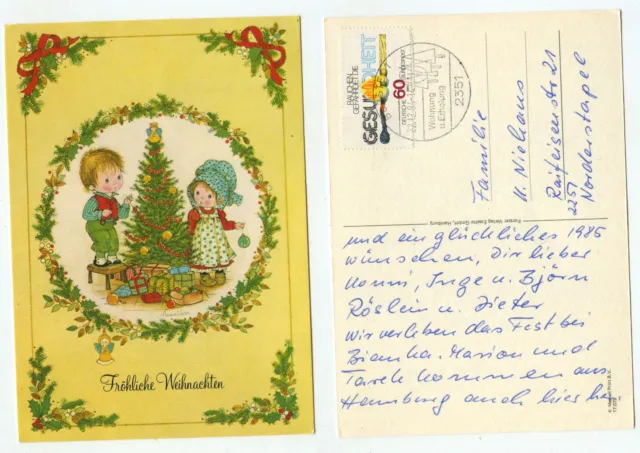 Fröhliche Weihnachten
RAUCHEN
GEFÄHRDET DIE
GESUNDHEIT
DEUTSCHE BUNDESPOST
60
2351
Wohnung
u. Erholung
Familie
H. Niehaus
Raifeisenstr 21
2251
Norderstapel
und ein glückliches 1985
wünschen, Dir lieber
Konni, Inge u. Björn
Röslein u. Dieter
Wir verleben das Fest bei
Bianka. Marion und
Tarek kommen aus
Hamburg auch hier her.